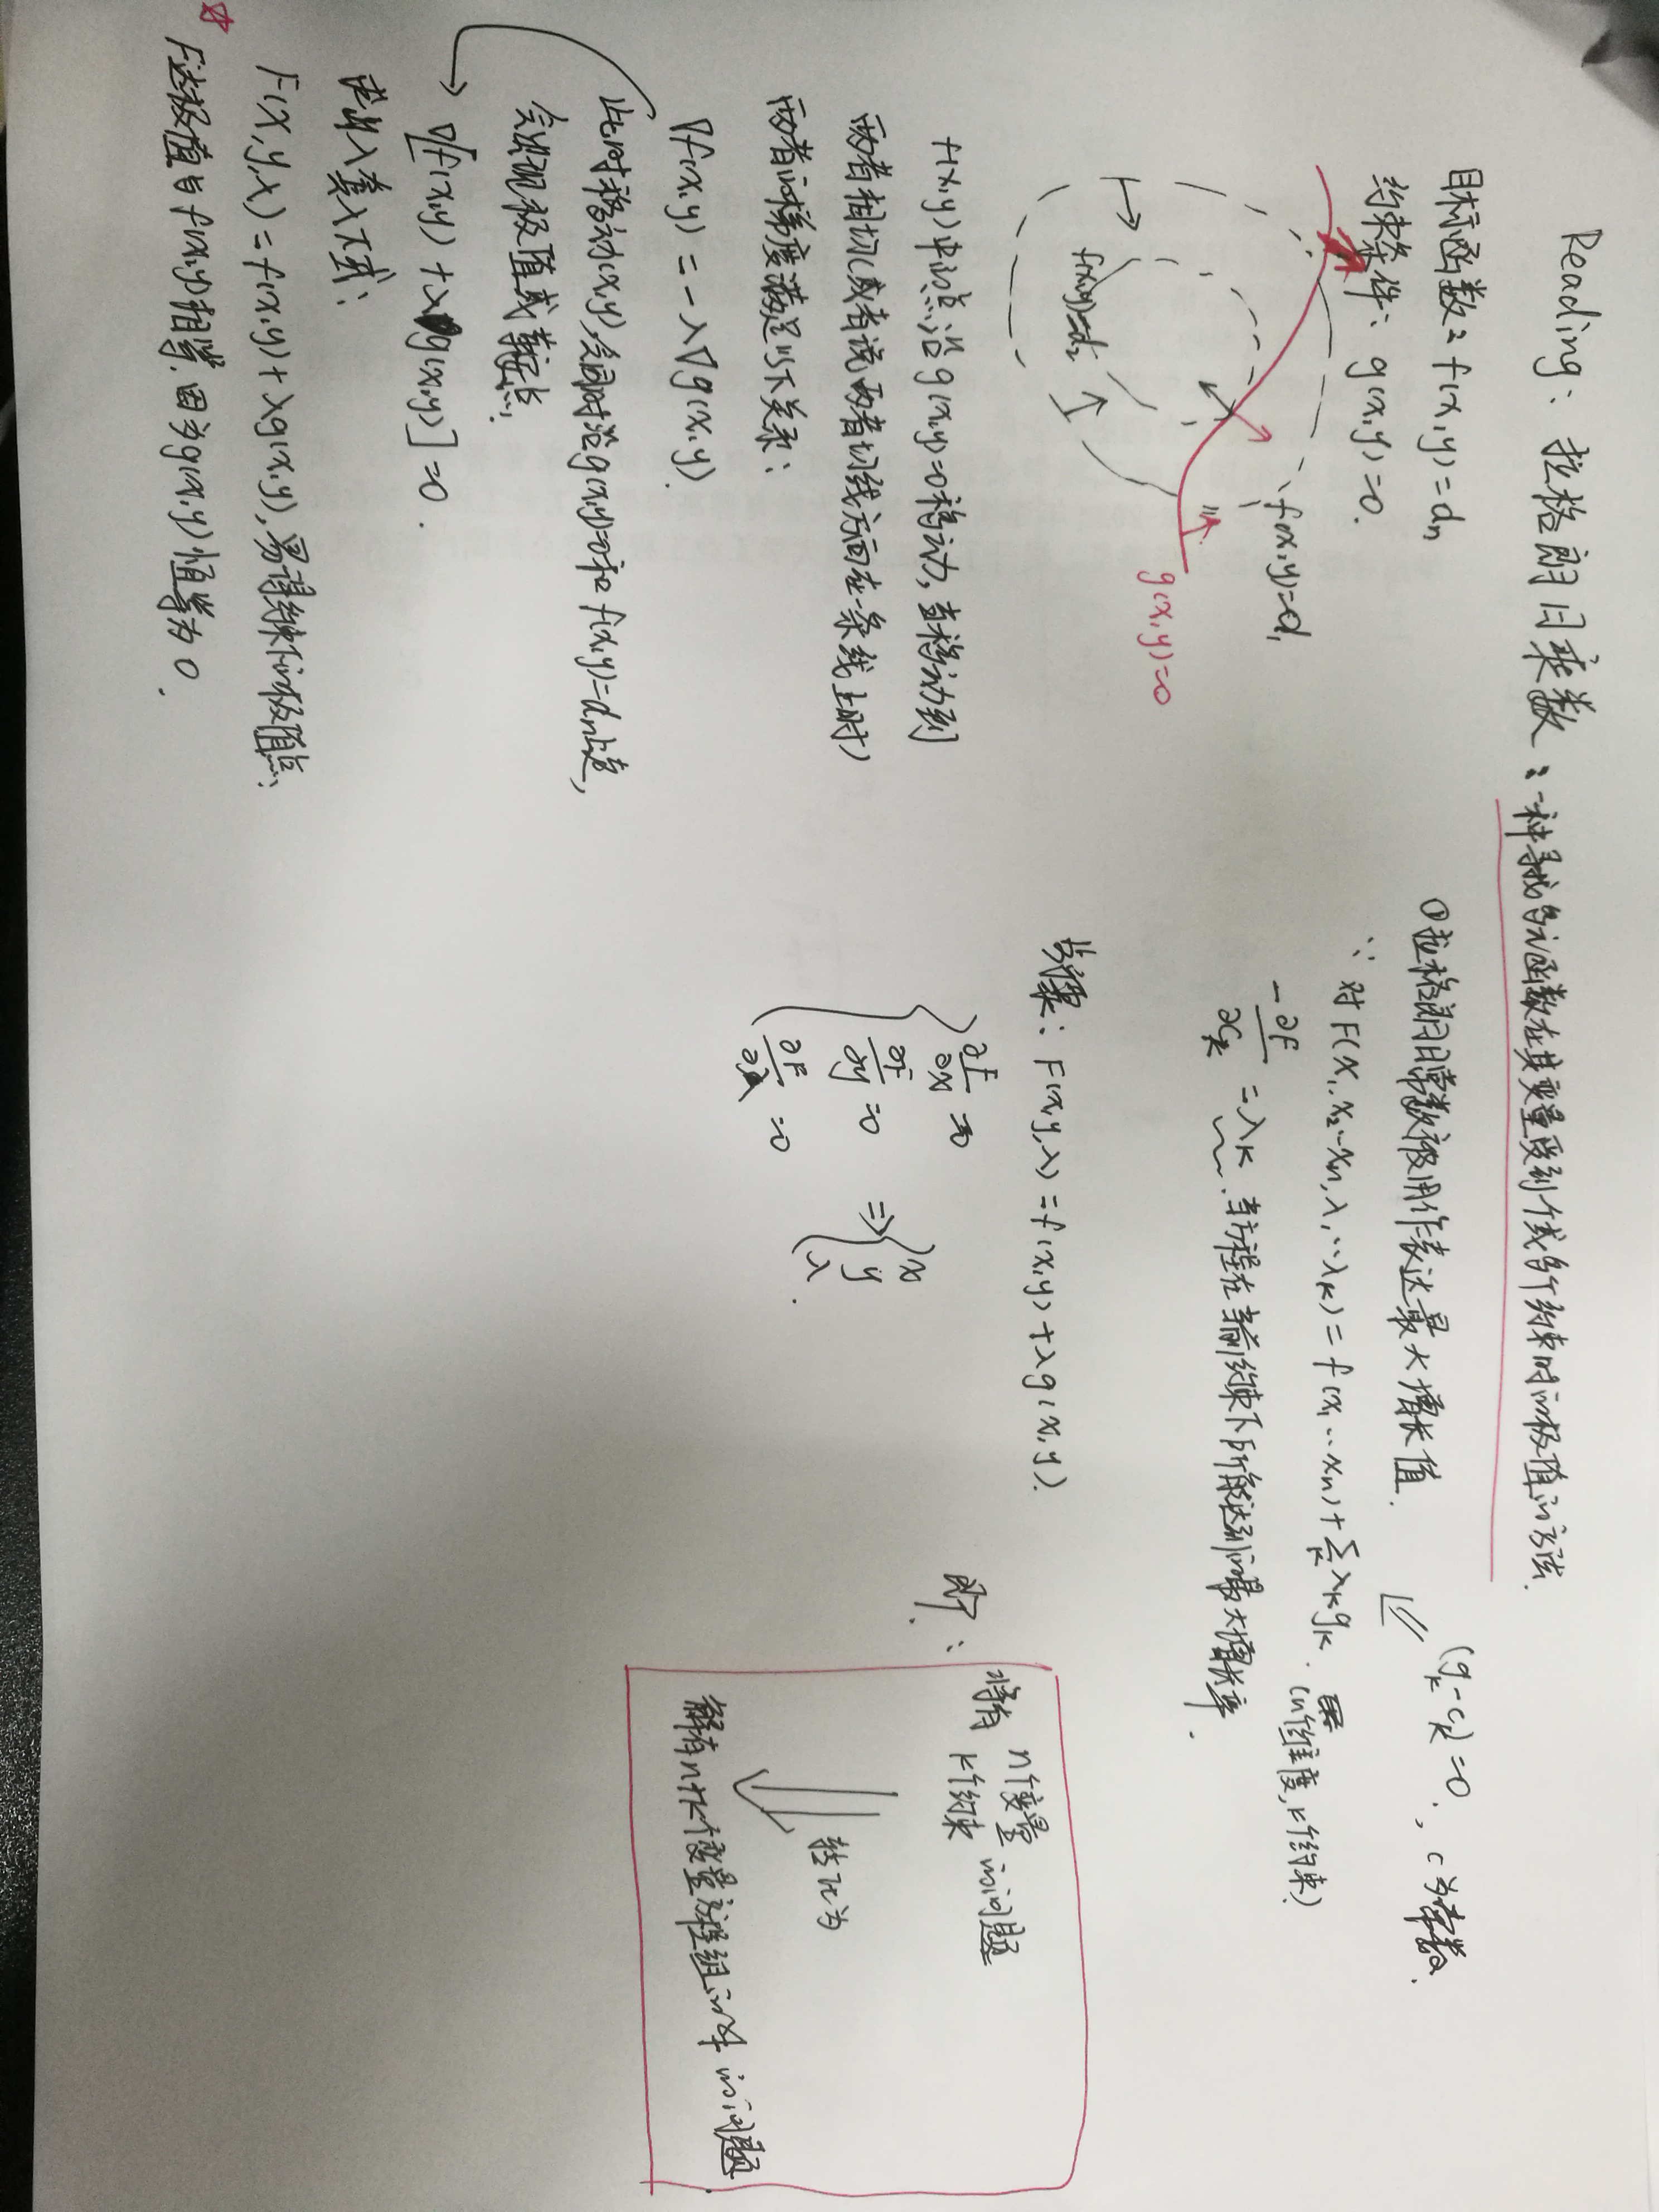 Reading: 拉格朗日乘数:一种寻找多元函数在其变量受到1个或多个约束时的极值的方法.
目标函数: f(x,y)=dn
约束条件: g(x,y)=0.
f(x,y)=d1
f(x,y)=d2
g(x,y)=0
f(x,y)中的点沿g(x,y)=0移动,当移动到
两者相切(或者说两者切线方向在一条线上时)
两者的梯度满足以下关系:
∇f(x,y)=-λ∇g(x,y).
此时移动(x,y),会同时沿g(x,y)=0和f(x,y)=dn上走,
会出现极值或鞍点.
∇[f(x,y)+λg(x,y)]=0.
求出λ,套入下式:
F(x,y,λ)=f(x,y)+λg(x,y),易得约束下的极值点.
☆ F达极值与f(x,y)相等.因为g(x,y)恒等为0.
①拉格朗日常数被用作表达最大增长值.
(gk-ck)=0, c为常数.
∵对F(x1,x2…xn,λ1…λk)=f(x1…xn)+∑kλkgk.(n个维度,k个约束)
-∂F/∂Ck=λk.当方程在当前约束下所能达到的最大增长率.
步骤: F(x,y,λ)=f(x,y)+λg(x,y).
∂F/∂x=0
∂F/∂y=0 ⇒ { x y λ.
∂F/∂λ=0
即:
将有 n个变量 k个约束 的问题
转化为
解有n+k个变量方程组的解的问题